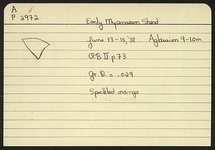 A
P 2972
Early Mycenaean Sherd
June 13-15, '38 Aglaurion 9-10m
OAB II p.73
Gr. D. = .029
Speckled orange